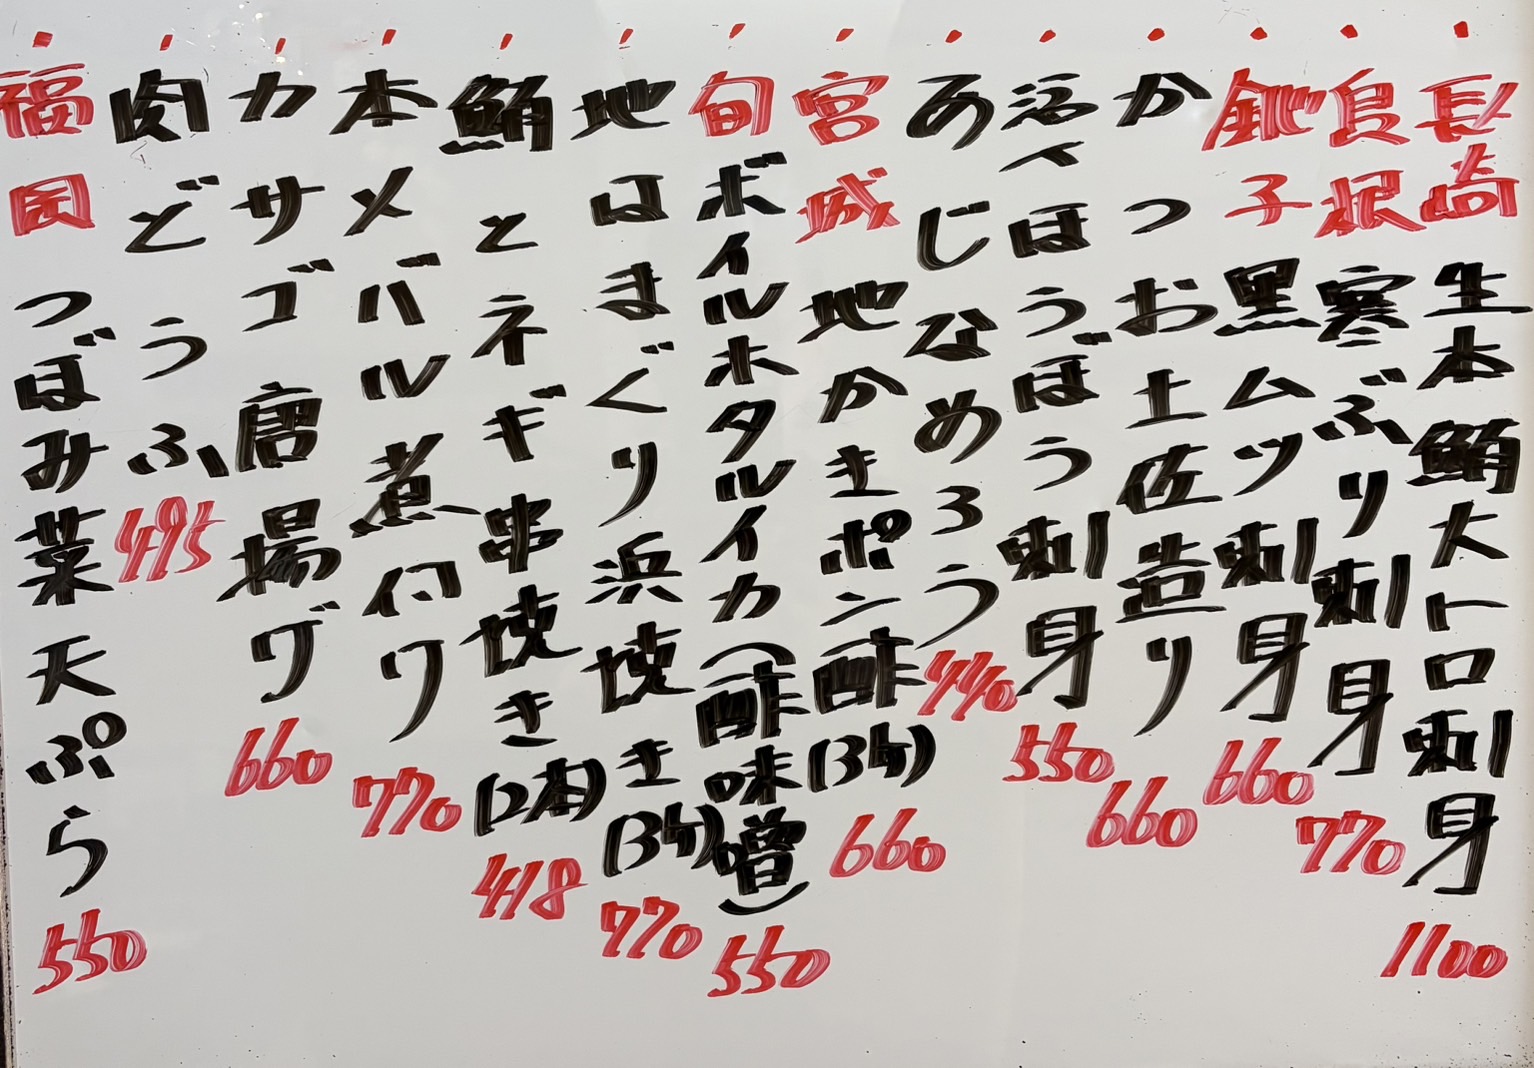 ・長崎 生本鮪大トロ刺身 1100
・良根 寒ぶり刺身 770
・銚子 黒ムツ刺身 660
・かつお土佐造り 660
・活〆ほうぼう刺身 550
・あじなめろう 440
・宮城 地かきポン酢(3ケ) 660
・旬 ボイルホタルイカ(酢味噌) 550
・地はまぐり浜焼き(3ケ) 770
・鮪とネギ串焼き(2本) 418
・本メバル煮付ケ 770
・カサゴ唐揚ゲ 660
・肉どうふ 495
・福岡 つぼみ菜天ぷら 550